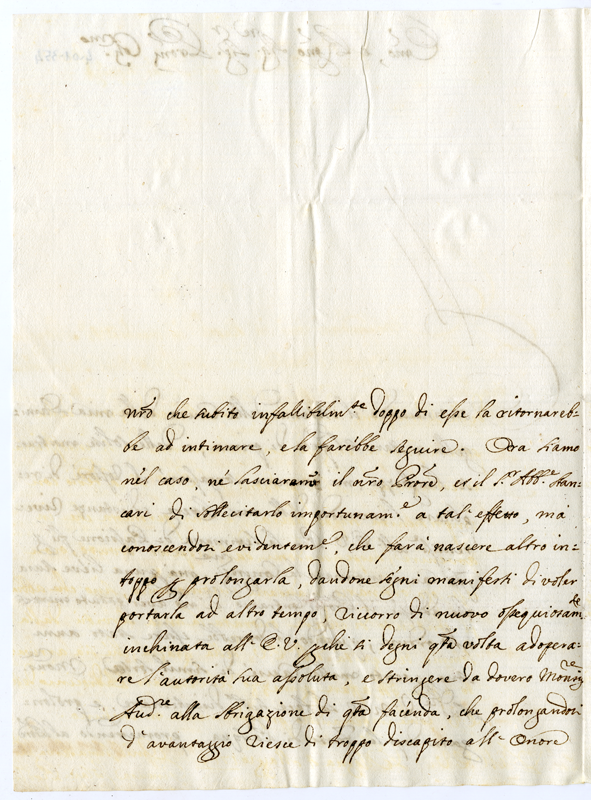 nr̃o che subito infallibilm.te doppo di esse la ritornareb-
be ad intimare, e la farebbe seguire. Ora siamo
nel caso, né lasciaranno il nr̃o Procre, et il S.r Abb.e Stan-
cari di sollecitarlo importunam.e a tal' effetto, mà
conoscendosi evidentem.e, che farà nascere altro in-
toppo p prolongarla, dandone segni manifesti di voler
portarla ad altro tempo, ricorro di nuovo ossequiosam.te
inchinata all' E.V. pché si degni qta volta adopera-
re l'autorità sua assoluta, e stringere da dovero Mons.re
Aud.re alla sbrigazione di qta facenda, che prolongandosi
d'avantaggio riesce di troppo discapito all' Onore